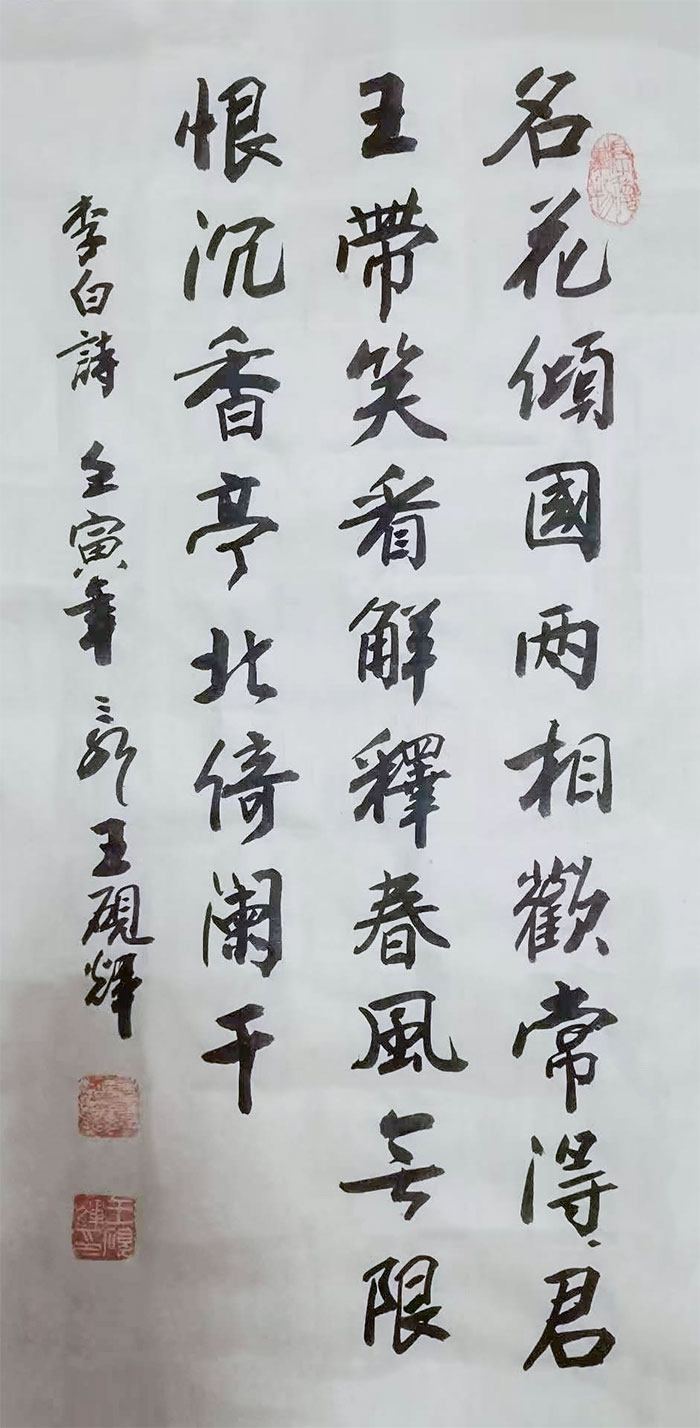 名花傾國两相歡常得君
王帶笑看解釋春風無限
恨沉香亭北倚闌干
李白詩 壬寅年 王硯輝
王硯輝印